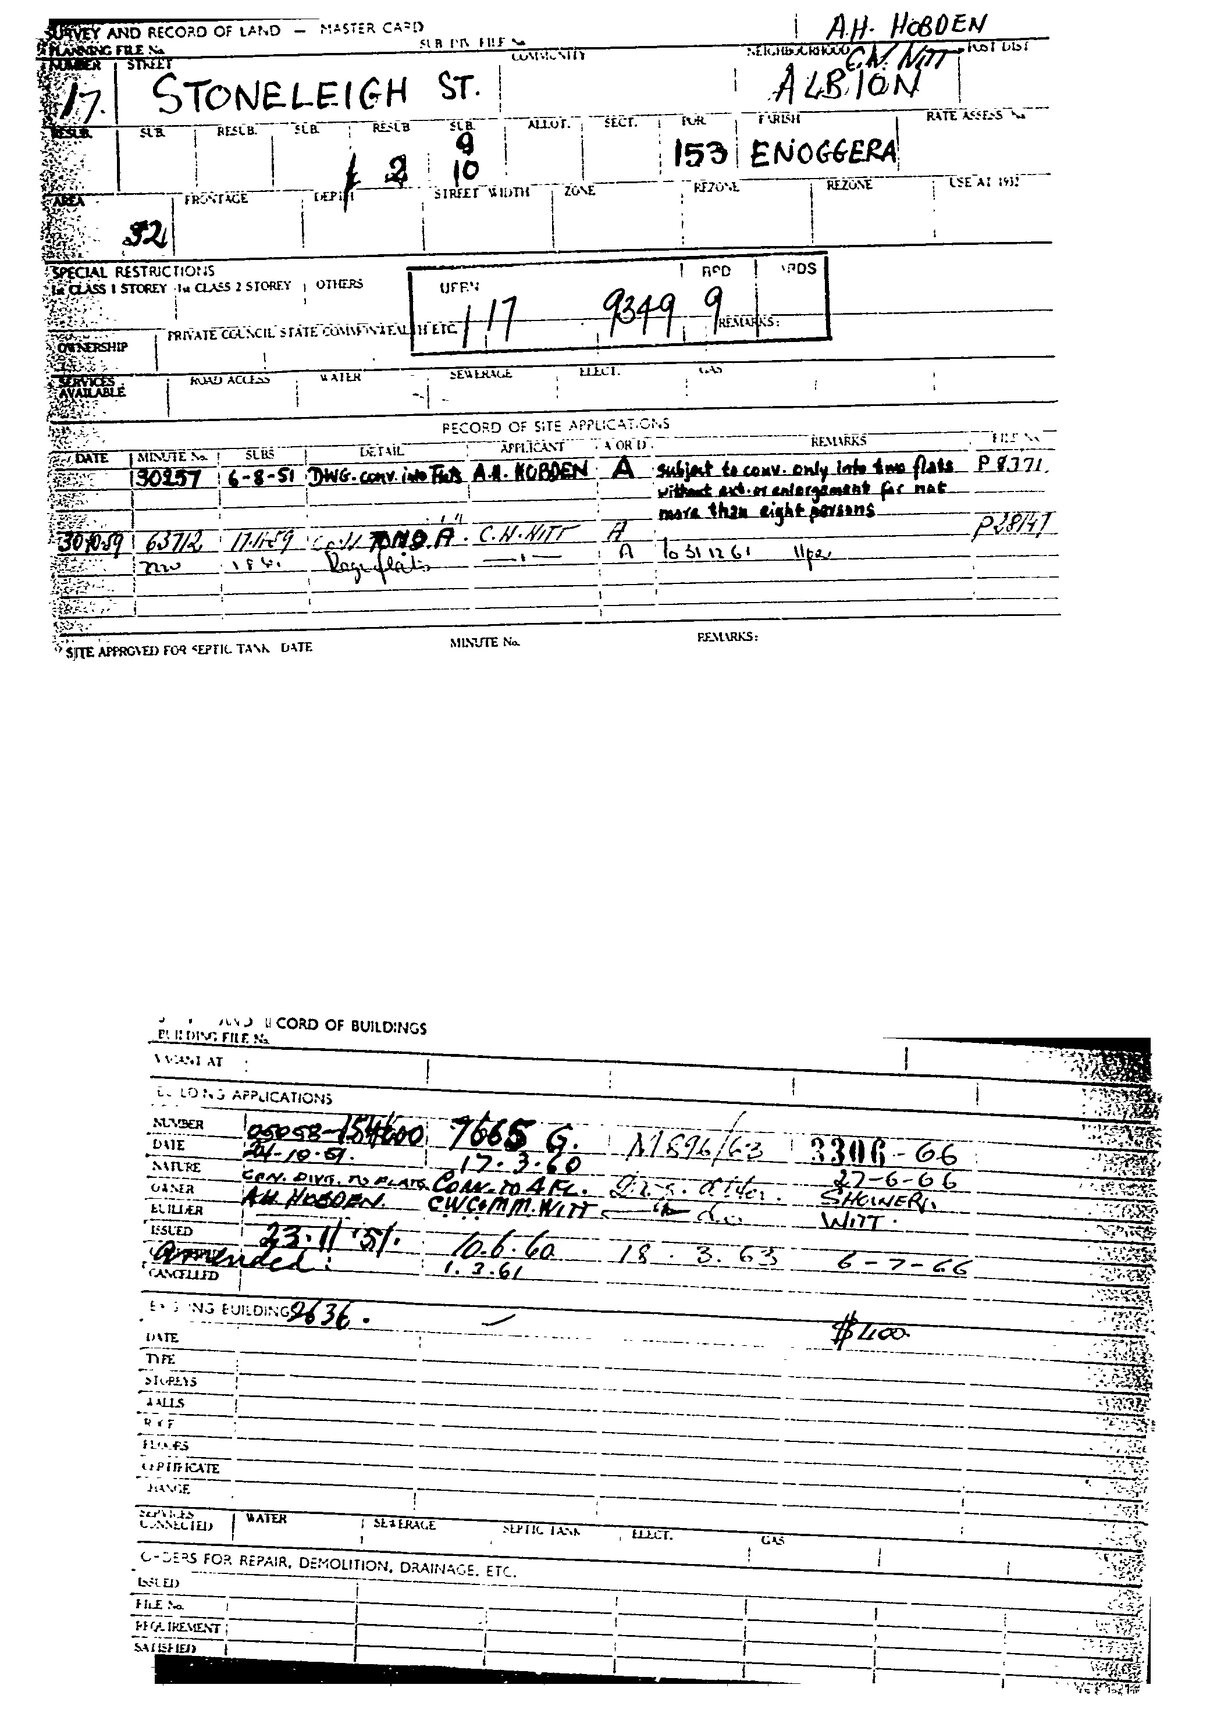 SURVEY AND RECORD OF LAND — MASTER CARD A.H. HOBDEN
PLANNING FILE No. SUB DIV. FILE No COMMUNITY NEIGHBOURHOOD C.N. NITT POST DIST
NUMBER STREET
17. STONELEIGH ST. ALBION
RESUB. SUB. RESUB. SUB. RESUB SUB. ALLOT. SECT. POR. PARISH RATE ASSESS No
9
2 10 153 ENOGGERA
AREA FRONTAGE DEPTH STREET WIDTH ZONE REZONE REZONE USE AT 1932
32
SPECIAL RESTRICTIONS
1st CLASS 1 STOREY 1st CLASS 2 STOREY OTHERS
RPD
117 9349 9
PRIVATE COUNCIL STATE COMMONWEALTH ETC. REMARKS:
OWNERSHIP
SERVICES AVAILABLE ROAD ACCESS WATER SEWERAGE ELECT. GAS
RECORD OF SITE APPLICATIONS
DATE MINUTE No. SUBS DETAIL APPLICANT A OR D. REMARKS FILE No
30257 6-8-51 DWG. conv. into Flats A.H. HOBDEN A subject to conv. only into two flats P8371.
without ext. or enlargement for not
more than eight persons
63712 17.11.59 C.N. NITT A P28/47
A to 31 12 61
SITE APPROVED FOR SEPTIC TANK DATE MINUTE No. REMARKS:
RECORD OF BUILDINGS
BUILDING FILE No.
VACANT AT
BUILDING APPLICATIONS
NUMBER 05058-154600 7665 G. M896/63 3306-66
DATE 24-10-51. 17.3.60 27-6-66
NATURE CON. DWG. TO FLATS. CONV. TO 4 FL. SHOWER.
OWNER A.H. HOBDEN. C.W.C & M.M. WITT do WITT.
BUILDER
ISSUED 23.11.51. 10.6.60 18.3.63 6-7-66
Amended: 1.3.61
CANCELLED
EXISTING BUILDING £636. $400.
DATE
TYPE
STOREYS
WALLS
ROOF
FLOORS
CERTIFICATE
CHANGE
SERVICES CONNECTED WATER SEWERAGE SEPTIC TANK ELECT. GAS
ORDERS FOR REPAIR, DEMOLITION, DRAINAGE, ETC.
ISSUED
FILE No.
REQUIREMENT
SATISFIED